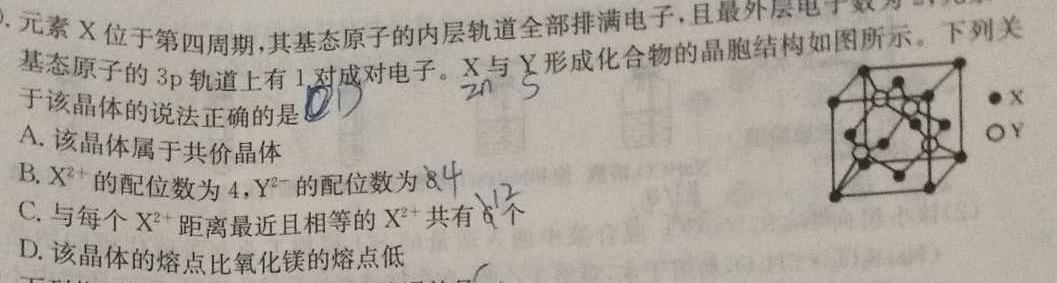 元素 X 位于第四周期,其基态原子的内层轨道全部排满电子,且最外层电子数为
基态原子的 3p 轨道上有 1 对成对电子。X 与 Y 形成化合物的晶胞结构如图所示。下列关
Zn S
于该晶体的说法正确的是 D
● X
○ Y
A. 该晶体属于共价晶体
B. X²⁺ 的配位数为 4,Y²⁻ 的配位数为 8 4
C. 与每个 X²⁺ 距离最近且相等的 X²⁺ 共有 6 个 12
D. 该晶体的熔点比氧化镁的熔点低